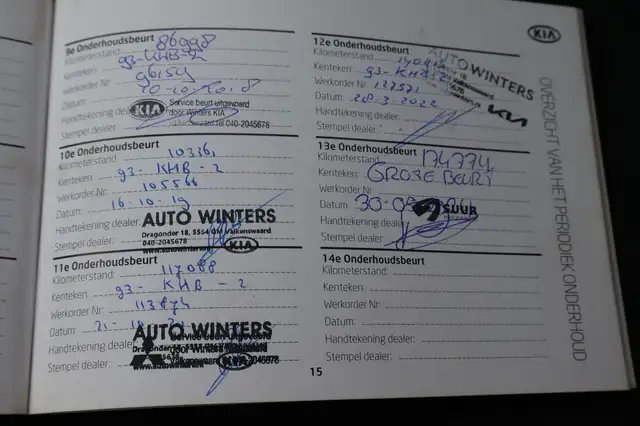 9e Onderhoudsbeurt
Kilometerstand 86998
Kenteken: 93-KHB-2
Werkorder Nr 96154
Datum: 10-10-2018
Handtekening dealer:
Stempel dealer:
KIA
Service beurt uitgevoerd
door Winters KIA
Valkenswaard Tel 040-2045678
10e Onderhoudsbeurt
Kilometerstand:
Kenteken: 93-KHB-2
Werkorder Nr: 105566
Datum: 16-10-19
Handtekening dealer:
Stempel dealer:
AUTO WINTERS
Dragonder 18, 5554 GM Valkenswaard
040-2045678
www.autowinters.nl
KIA
11e Onderhoudsbeurt
Kilometerstand: 117088
Kenteken: 93-KHB-2
Werkorder Nr: 113874
Datum: 21-10-
Handtekening dealer:
Stempel dealer:
AUTO WINTERS
Service beurt uitgevoerd
door Winters
Valkenswaard
www.autowinters.nl
KIA
12e Onderhoudsbeurt
Kilometerstand
Kenteken: 93-KHB-2
Werkorder Nr: 127571
Datum: 28-3-2022
Handtekening dealer:
Stempel dealer:
AUTO WINTERS
KIA
13e Onderhoudsbeurt
Kilometerstand: 174774
Kenteken: GROTE BEURT
Werkorder Nr
Datum: 30-0
Handtekening dealer:
Stempel dealer:
SUUR
14e Onderhoudsbeurt
Kilometerstand:
Kenteken:
Werkorder Nr:
Datum:
Handtekening dealer:
Stempel dealer:
15
KIA
OVERZICHT VAN HET PERIODIEK ONDERHOUD